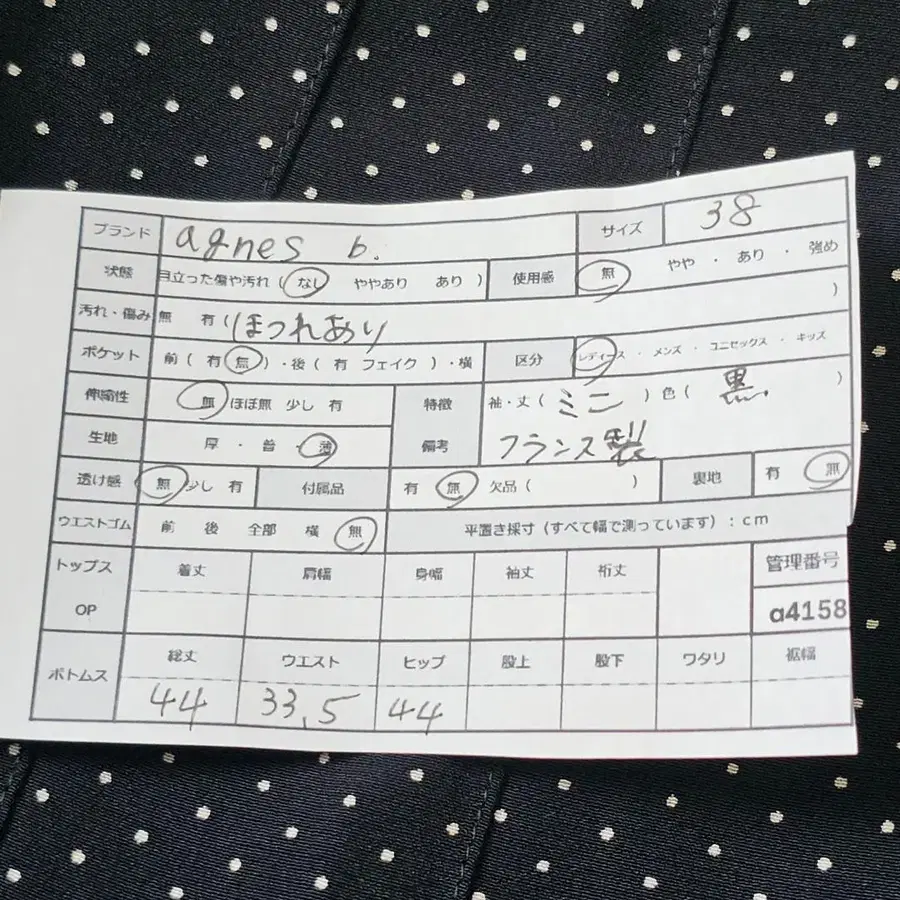 ブランド agnes b. サイズ 38
状態 目立った傷や汚れ ( なし ややあり あり ) 使用感 無 やや ・ あり ・ 強め
汚れ・傷み 無 有 ( ほつれあり )
ポケット 前 ( 有 無 ) ・後 ( 有 フェイク ) ・横 区分 レディース ・ メンズ ・ ユニセックス ・ キッズ
伸縮性 無 ほぼ無 少し 有 特徴 袖・丈 ( ミニ ) 色 ( 黒. )
生地 厚 ・ 普 ・ 薄 備考 フランス製
透け感 無 少し 有 付属品 有 無 欠品 ( ) 裏地 有 無
ウエストゴム 前 後 全部 横 無 平置き採寸 (すべて幅で測っています) : cm
トップス 着丈 肩幅 身幅 袖丈 裄丈 管理番号
OP a4158
ボトムス 総丈 ウエスト ヒップ 股上 股下 ワタリ 裾幅
44 33.5 44